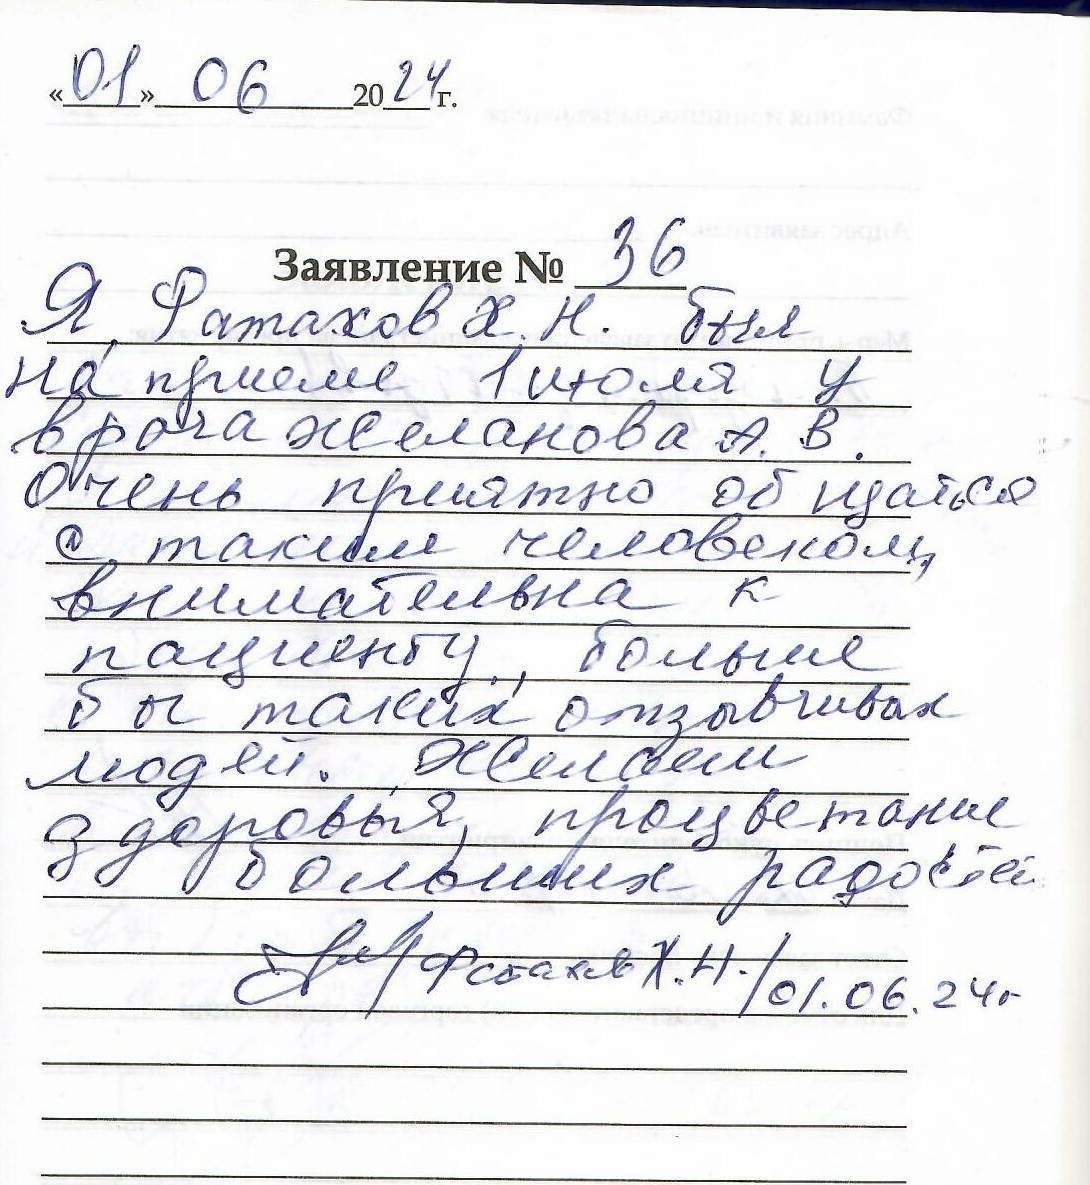 «01» 06 2024 г.
Заявление № 36
Я, Фатахов Х. Н. был
на приеме 1 июля у
врача Желанова А. В.
Очень приятно общаться
с таким человеком,
внимательна к
пациенту, больше
бы таких отзывчивах
людей. Желаем
здоровья, процветание
больших радостей
Фатахов Х. Н. / 01.06.24г